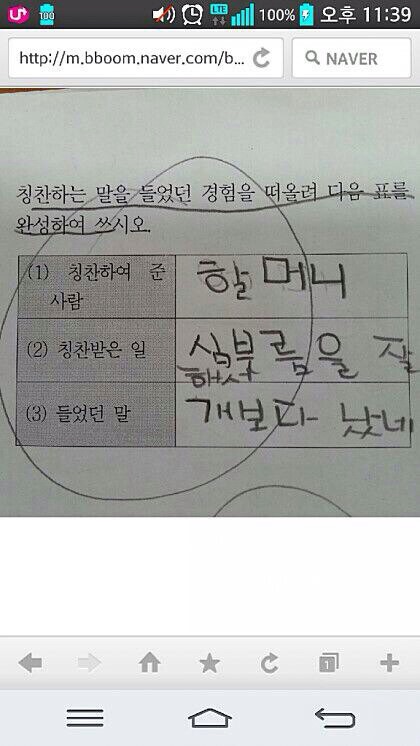 U+ 100 LTE 100% 오후 11:39
http://m.bboom.naver.com/b... NAVER
칭찬하는 말을 들었던 경험을 떠올려 다음 표를
완성하여 쓰시오.
(1) 칭찬하여 준 할머니
사람
(2) 칭찬받은 일 심부름을 잘
했ㅅ
(3) 들었던 말 개보다 낫네
1